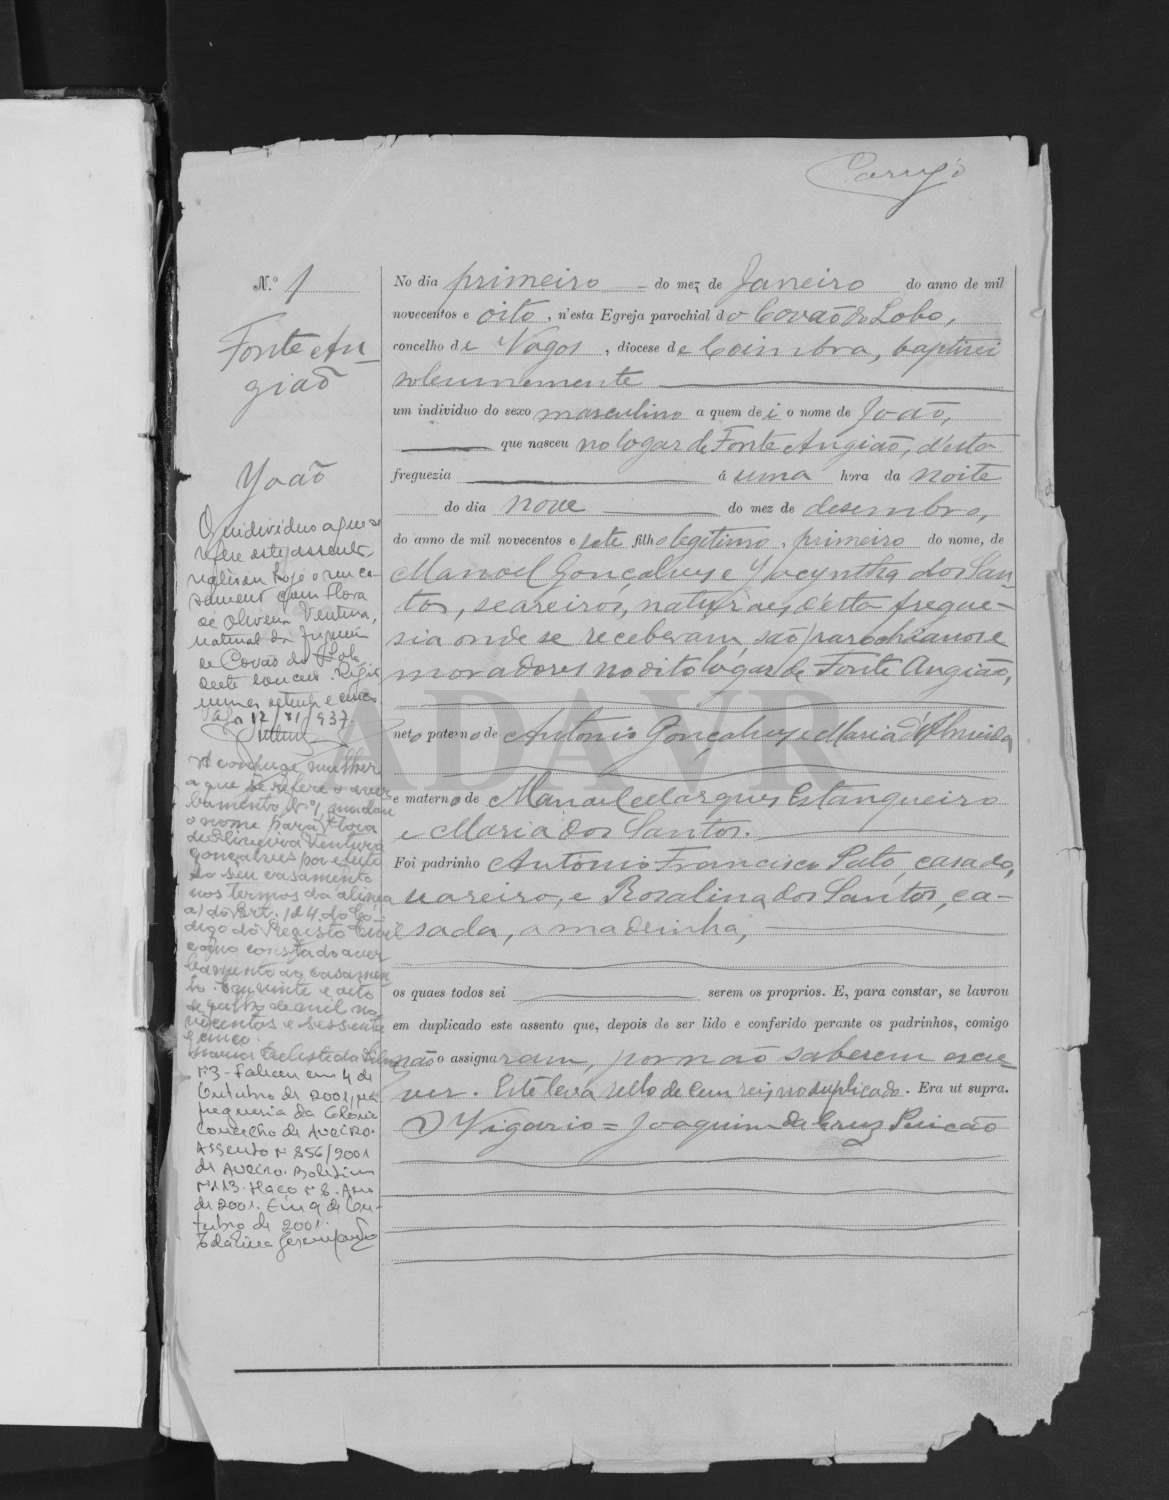 N.º 1
Fonte An-
gião
João
O individuo a que se
refere este assento,
realisou hoje o seu ca-
samento com Flora
de Oliveira Ventura,
natural da freguesia
de Covão do Lobo
deste concelho.
numero setenta e cinco
12/XI/937.
A conjuge mulher
a que se refere o aver-
bamento nº 1, mudou
o nome para Flora
de Oliveira Ventura
Gonçalves por efeito
do seu casamento
nos termos da alinea
a) do Art. do Có-
digo do Registo Civil
como consta do aver-
bamento ao casamen-
to. Em vinte e oito
de de mil no-
vecentos e sessenta
e cinco.
Nº3 - Faleceu em 4 de
Outubro de 2001, na
freguesia da Glória
concelho de Aveiro.
Assento nº 856/2001
de Aveiro. Boletim
nº 113. Maço nº 8. Ano
de 2001. Em 9 de Ou-
tubro de 2001.
No dia primeiro do mez de Janeiro do anno de mil
novecentos e oito, n'esta Egreja parochial do Covão do Lobo,
concelho de Vagos, diocese de Coimbra, baptisei
solemnemente
um individuo do sexo masculino a quem dei o nome de João,
que nasceu no logar de Fonte Angião, d'esta
freguezia á uma hora da noite
do dia nove do mez de desembro,
do anno de mil novecentos e sete filho legitimo, primeiro do nome, de
Manoel Gonçalves e Jacyntha dos San-
tos, seareiros, naturaes d'esta fregue-
sia onde se receberam, são parochianos e
moradores no dito logar de Fonte Angião,
neto paterno de Antonio Gonçalves e Maria d'Almeida
e materno de Manoel Marques Estanqueiro
e Maria dos Santos.
Foi padrinho Antonio Francisco Pato, casado,
seareiro, e Rosalina dos Santos, ca-
sada, a madrinha,
os quaes todos sei serem os proprios. E, para constar, se lavrou
em duplicado este assento que, depois de ser lido e conferido perante os padrinhos, comigo
não o assignaram, por não saberem escre-
ver. Este leva sello de cem reis no duplicado. Era ut supra.
O Vigario = Joaquim da Cruz
ADAVR